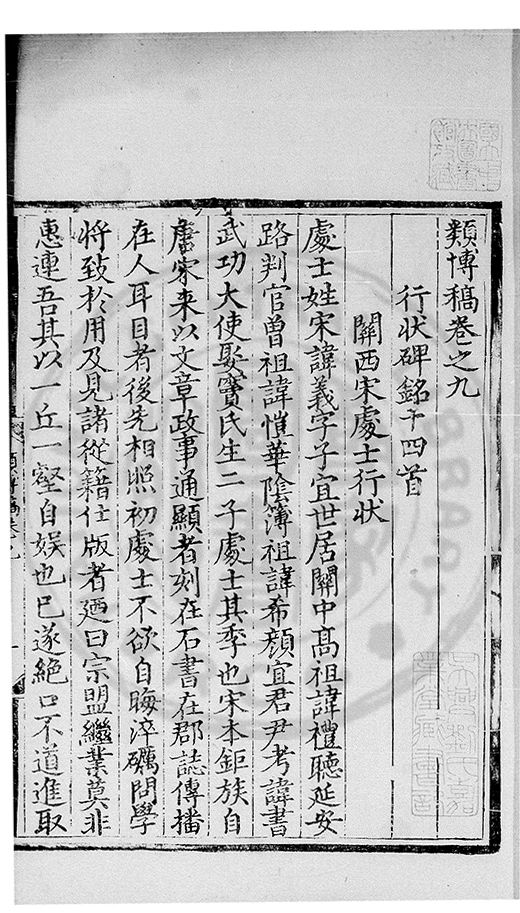 類博稿卷之九
行狀碑銘十四首
關西宋處士行狀
處士姓宋諱義字子宜世居關中高祖諱禮聽延安
路判官曾祖諱愷華陰簿祖諱希顏宜君尹考諱書
武功大使娶竇氏生二子處士其季也宋本鉅族自
唐宋来以文章政事通顯者刻在石書在郡誌傳播
在人耳目者後先相照初處士不欲自晦淬礪問學
将致於用及見諸從籍仕版者廼曰宗盟繼業莫非
惠連吾其以一丘一壑自娛也已遂絶口不道進取